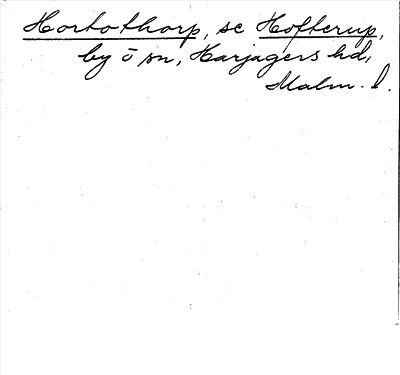 Hortothorp, se Hofterup,
by ō sn, Harjagers hd,
Malm. l.